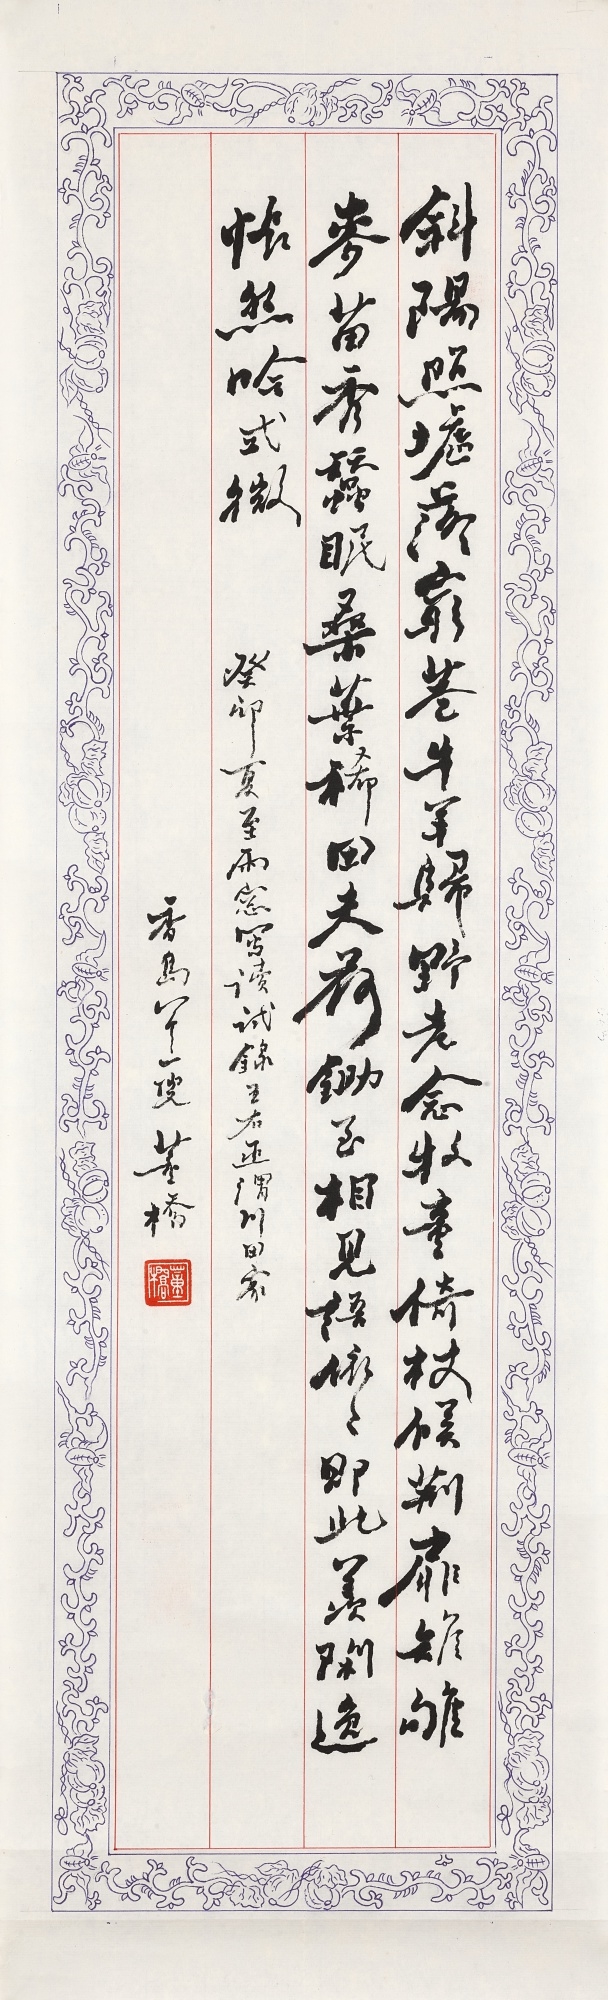 斜陽照墟落窮巷牛羊歸野老念牧童倚杖候荊扉雉雊
麥苗秀蠶眠桑葉稀田夫荷鋤至相見語依〻即此羨閒逸
悵然吟式微
癸卯夏至雨窗寫讀試錄王右丞渭川田家
香島 董橋
董橋